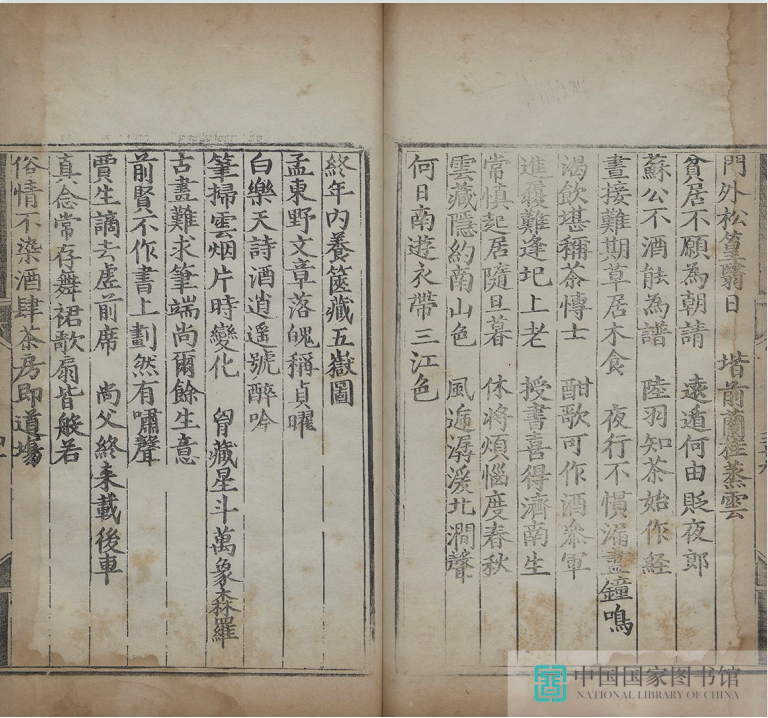 門外松篁翳日　堦前蘭桂蒸雲
貧居不願為朝請　遠遁何由貶夜郎
蘇公不酒能為譜　陸羽知茶始作經
晝接難期草居木食　夜行不慣漏盡鐘鳴
渴飲堪稱茶博士　酣歌可作酒叅軍
進履難逢圯上老　授書喜得濟南生
常慎起居隨旦暮　休將煩惱度春秋
雲藏隱約南山色　風遞潺湲北澗聲
何日南遊衣帶三江色
終年內養篋藏五嶽圖
孟東野文章落魄稱貞曜
白樂天詩酒逍遥號醉吟
筆掃雲烟片時變化　胷藏星斗萬象森羅
古畫難求筆端尚爾餘生意
前賢不作書上劃然有嘯聲
賈生謫去虛前席　尚父終来載後車
真念常存舞裙歌扇皆般若
俗情不染酒肆茶房即道塲
中国国家图书馆
NATIONAL LIBRARY OF CHINA